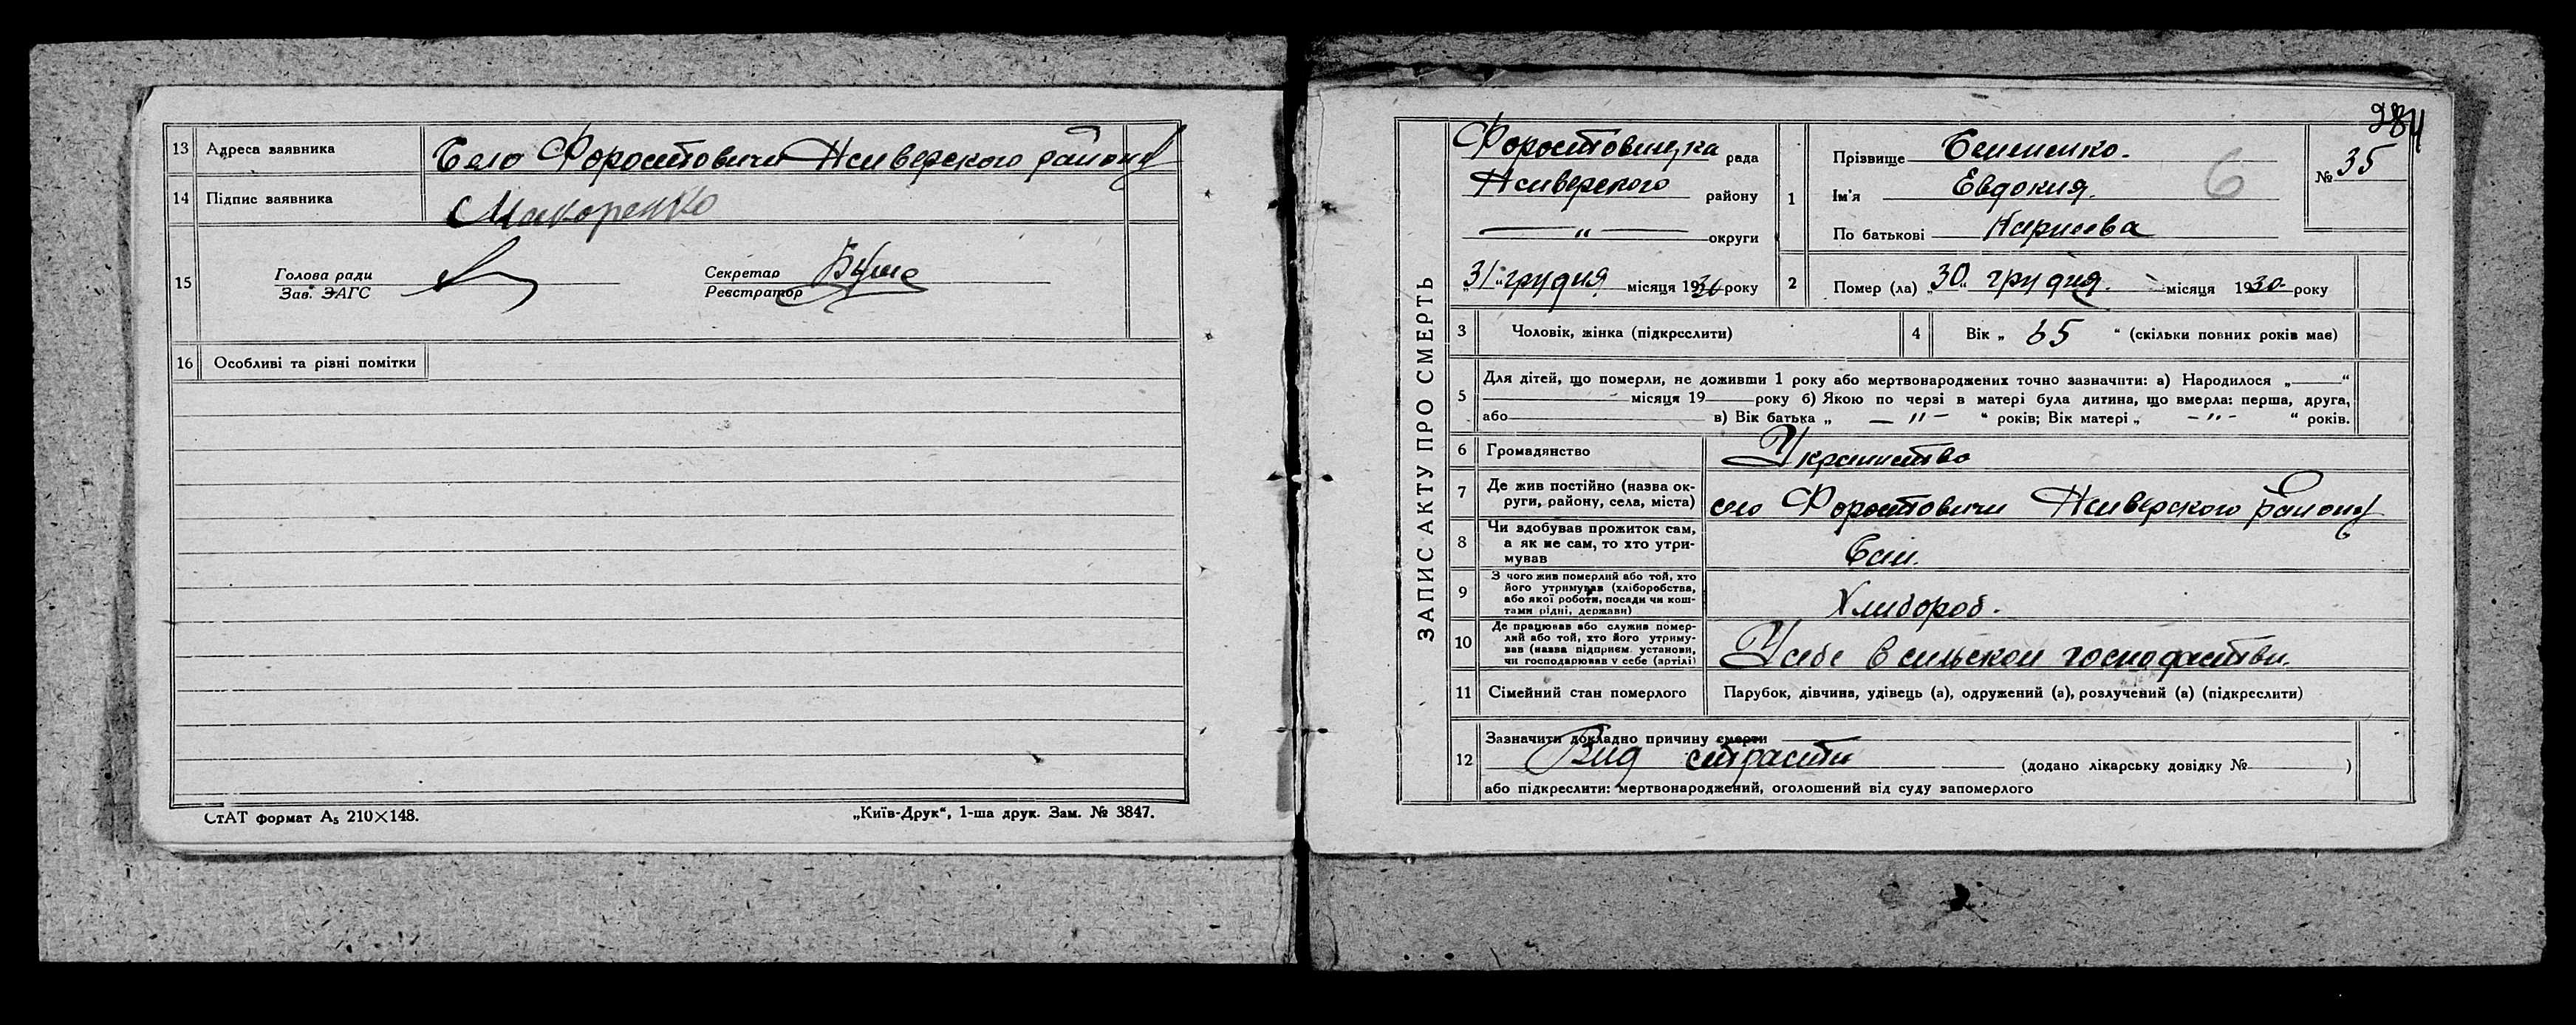 13 Адреса заявника Село Форостовичи Нсиверского району
14 Підпис заявника Макоренко
15 Голова ради
Зав. ЗАГС
Секретар
Реєстратор
16 Особливі та різні помітки
СтАТ формат А₅ 210×148.
„Київ-Друк“, 1-ша друк. Зам. № 3847.
284
ЗАПИС АКТУ ПРО СМЕРТЬ
Форостовицка рада
Нсиверского району
— „ — округи
„31“ грудня місяця 1930 року
1 Прізвище
Ім'я Евдокия.
По батькові
6
№ 35
2 Помер (ла) „30“ грудня. місяця 1930 року
3 Чоловік, жінка (підкреслити)
4 Вік „ 65 “ (скільки повних років має)
5 Для дітей, що померли, не доживши 1 року або мертвонароджених точно зазначити: а) Народилося „——“
місяця 19 року б) Якою по черзі в матері була дитина, що вмерла: перша, друга,
або в) Вік батька „ — „ — “ років; Вік матері „ — „ — “ років.
6 Громадянство
7 Де жив постійно (назва ок-
руги, району, села, міста) село Форостовичи Нсиверского району
8 Чи здобував прожиток сам,
а як не сам, то хто утри-
мував Сам.
9 З чого жив померлий або той, хто
його утримував (хліборобства,
або якої роботи, посади чи кош-
тами рідні, держави) Хлибороб.
10 Де працював або служив помер-
лий або той, хто його утриму-
вав (назва підприєм. установи,
чи господарював у себе (артілі) У себе в сильском господастви.
11 Сімейний стан померлого Парубок, дівчина, удівець (а), одружений (а), розлучений (а) (підкреслити)
12 Зазначити докладно причину смерти
Вид страсти (додано лікарську довідку № )
або підкреслити: мертвонароджений, оголошений від суду запомерлого